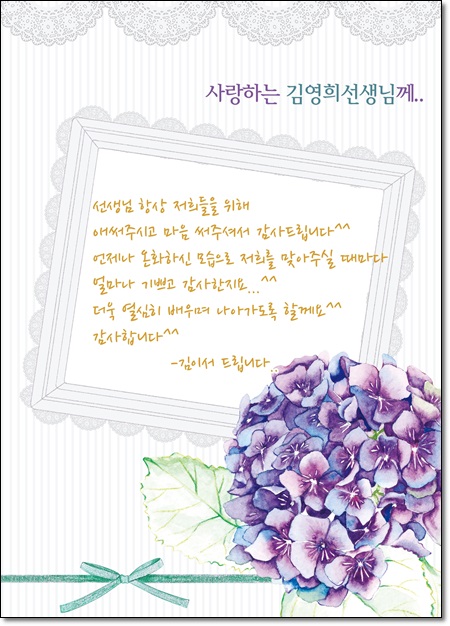 사랑하는 김영희선생님께..
선생님 항상 저희들을 위해
애써주시고 마음 써주셔서 감사드립니다^^
언제나 온화하신 모습으로 저희를 맞아주실 때마다
얼마나 기쁘고 감사한지요...^^
더욱 열심히 배우며 나아가도록 할께요^^
감사합니다^^
-김이서 드립니다..